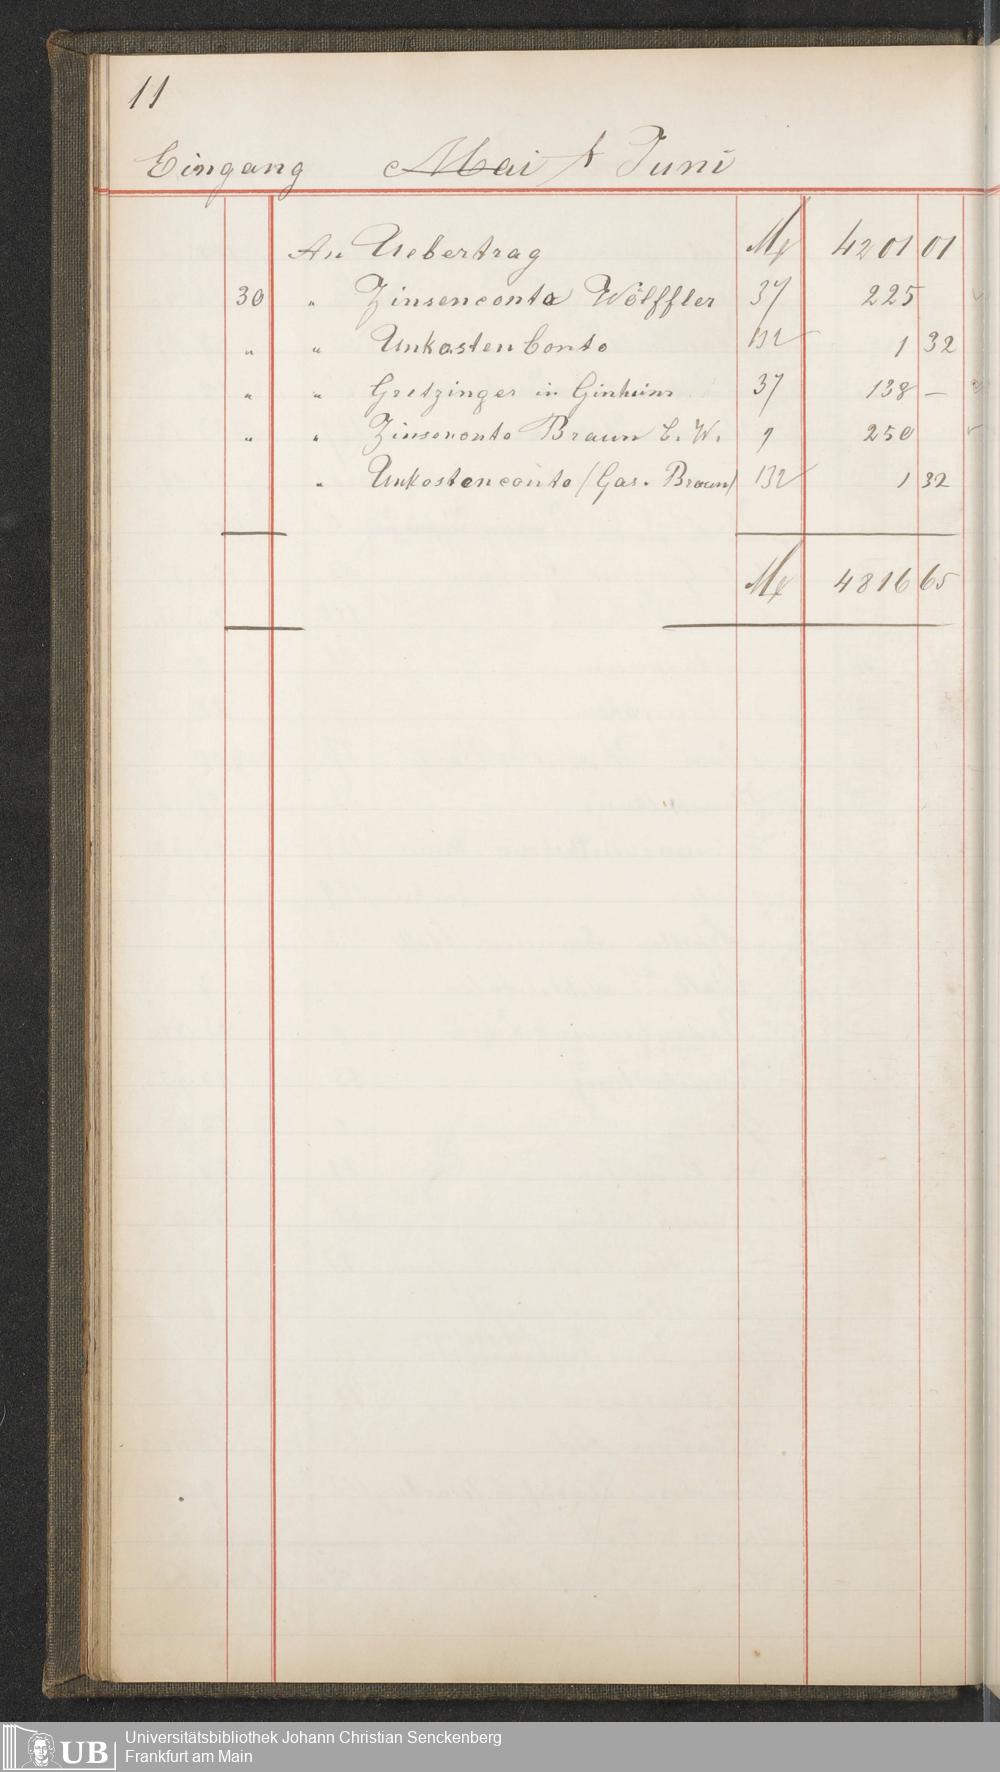 11
Eingang Mai & Juni
An Uebertrag M 4201 01
30 " Zinsenconto Wölffler 37 225
" " Unkosten Conto 132 1 32
" " Gretzinger in Ginheim 37 138 —
" " Zinsenconto Braun C. W. 9 250
" Unkostenconto (Gas. Braun) 132 1 32
M 4816 65
Universitätsbibliothek Johann Christian Senckenberg
Frankfurt am Main
UB